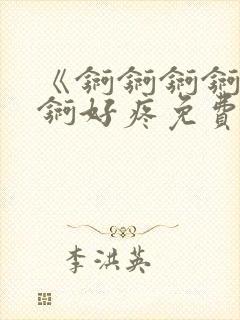 《锕锕锕锕
锕好疼免費
李洪英